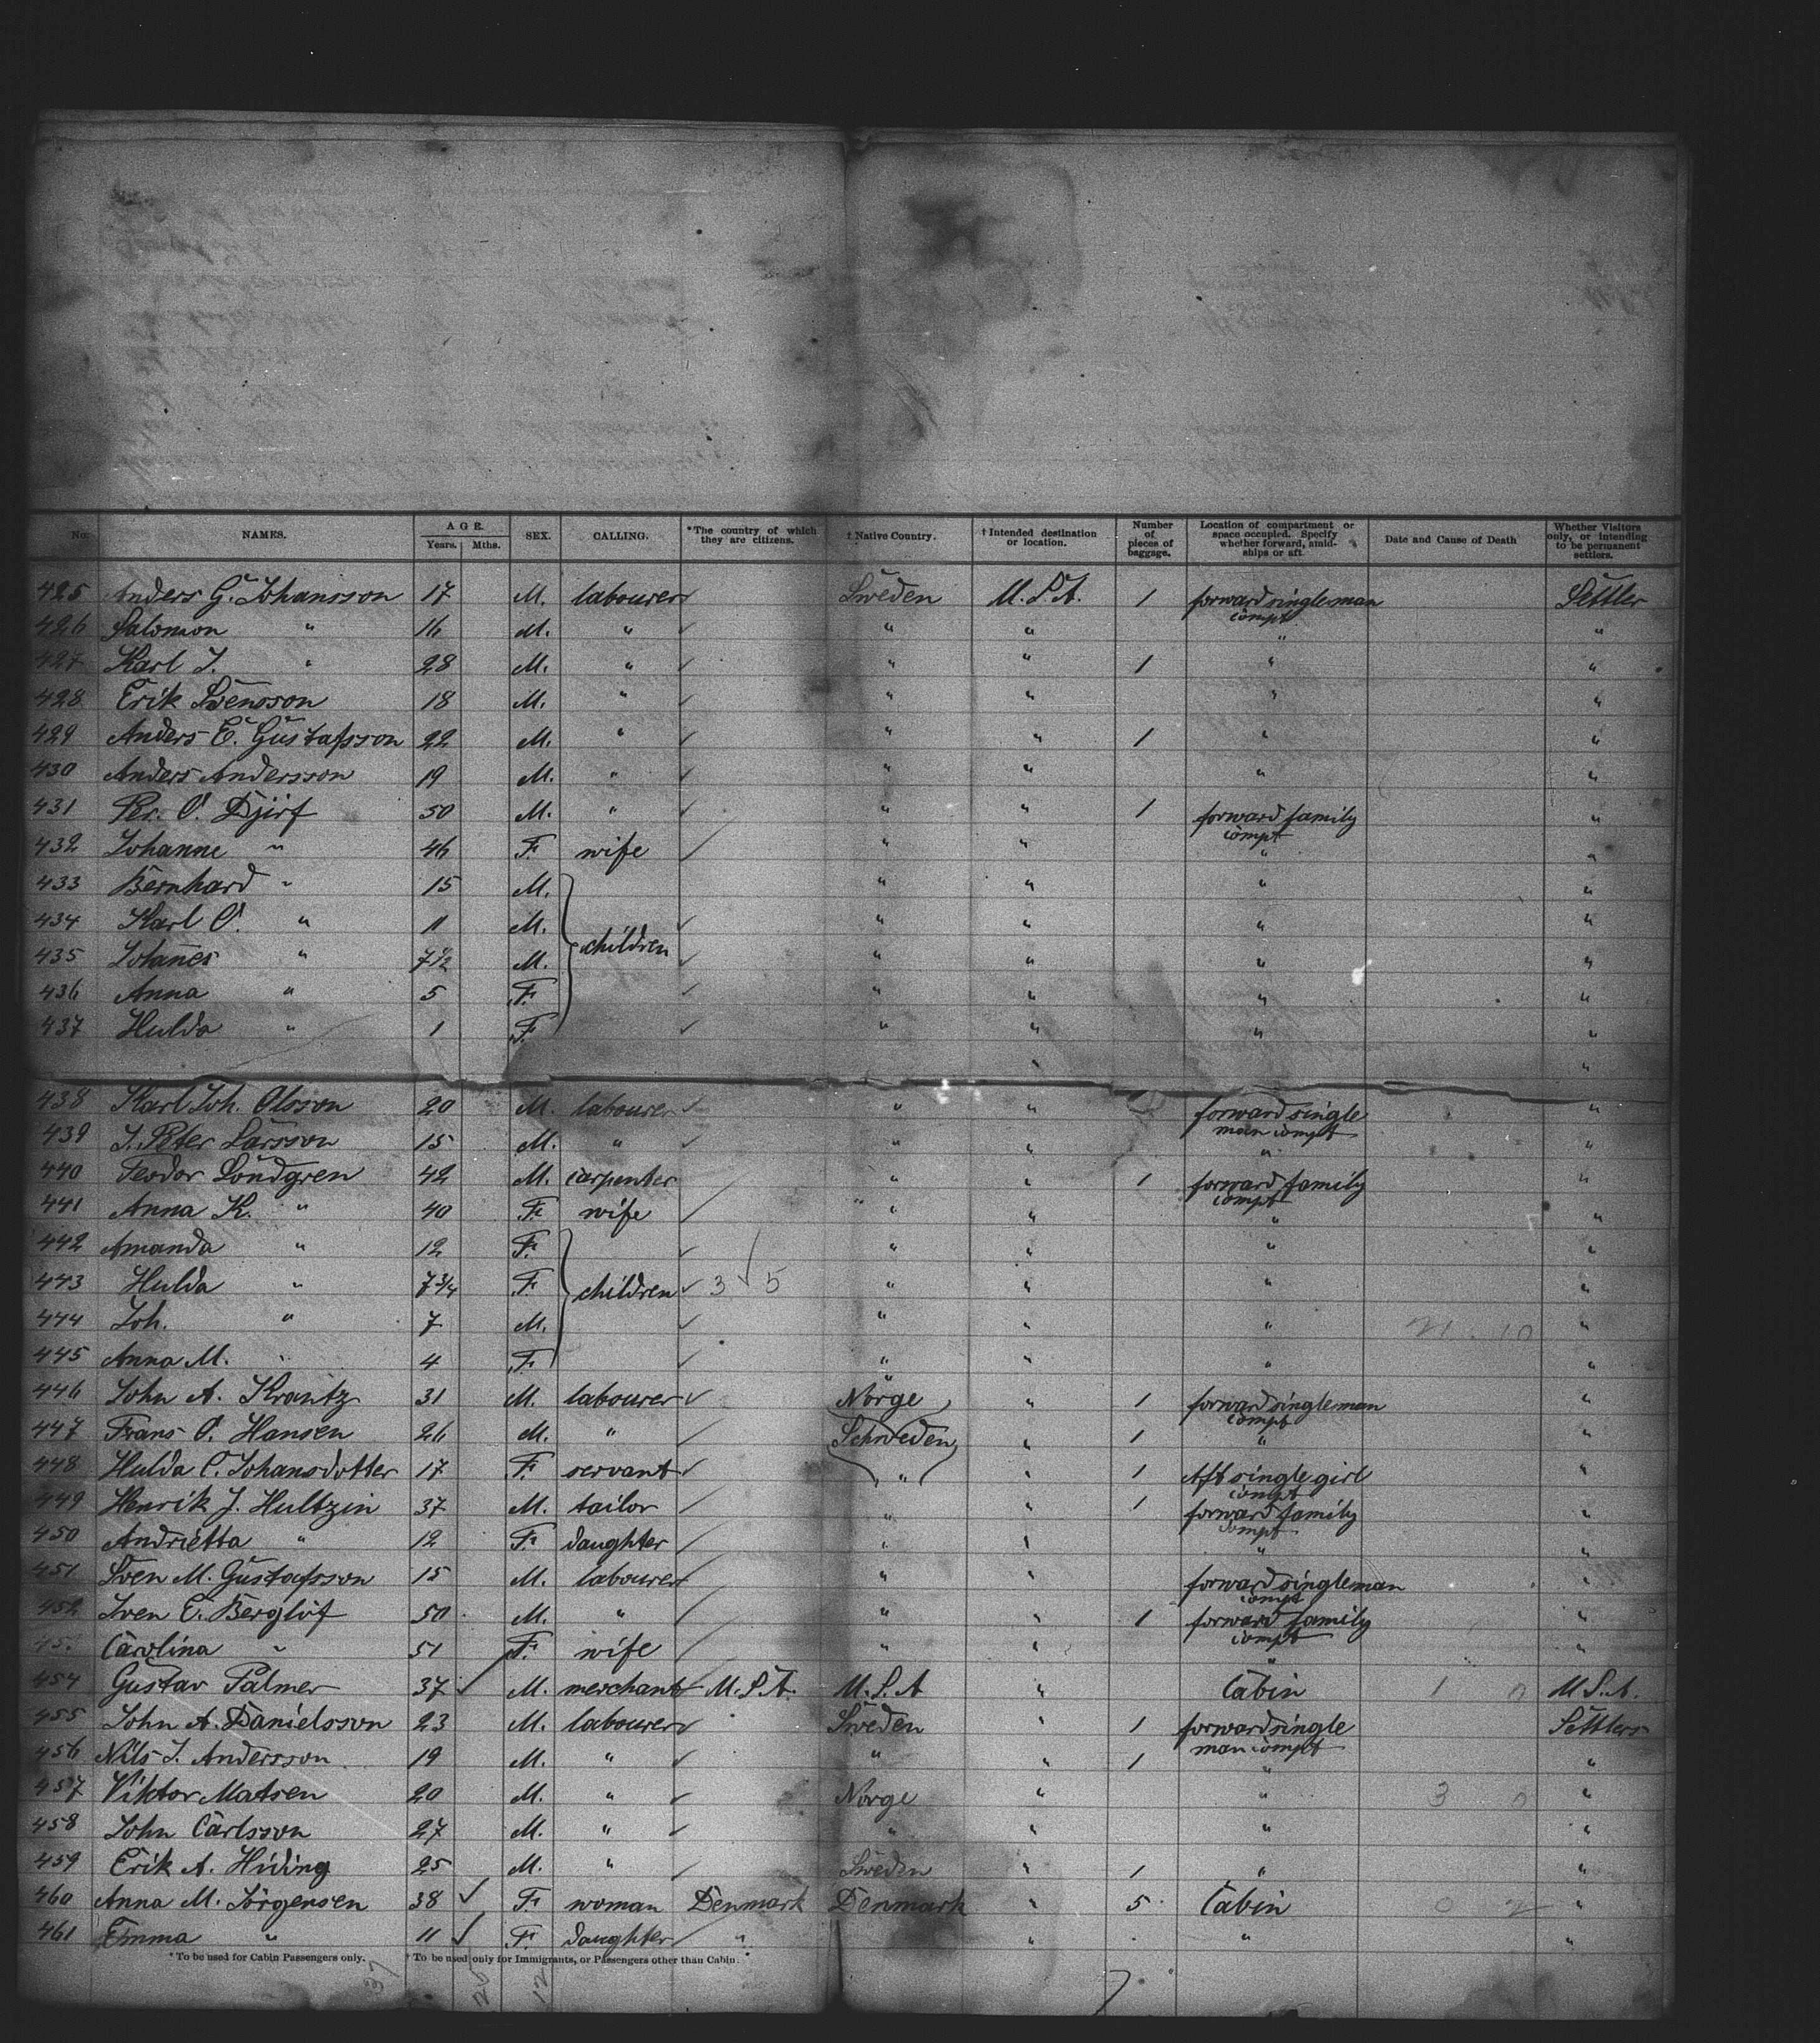 No. NAMES. AGE. Years. Mths. SEX. CALLING. *The country of which they are citizens. † Native Country. † Intended destination or location. Number of pieces of baggage. Location of compartment or space occupied. Specify whether forward, amidships or aft. Date and Cause of Death Whether Visitors only, or intending to be permanent settlers.
425 Anders G. Johansson 17 M. labourer ✓ Sweden U.S.A. 1 forward single man compt Settler
426 Salomon " 16 M. " ✓ " " " "
427 Karl J. " 28 M. " ✓ " " 1 " "
428 Erik Svensson 18 M. " ✓ " " " "
429 Anders E. Gustafsson 22 M. " ✓ " " 1 " "
430 Anders Andersson 19 M. " ✓ " " " "
431 Per. O. Djirf 50 M. " ✓ " " 1 forward family compt "
432 Johanne " 46 F. wife ✓ " " " "
433 Bernhard " 15 M. " " " "
434 Karl O. " 11 M. children ✓ " " " "
435 Johanes " 7½ M. ✓ " " " "
436 Anna " 5 F. ✓ " " " "
437 Hulda " 1 F. ✓ " " " "
" "
438 Karl Joh. Olsson 20 M. labourer ✓ " " forward single man compt "
439 J. Peter Larsson 15 M. " ✓ " " " "
440 Teodor Londgren 42 M. carpenter " " 1 forward family compt "
441 Anna K. " 40 F. wife ✓ " " " "
442 Amanda " 12 F. ✓ " " " "
443 Hulda " 7¾ F. children ✓ 3 ✓ 5 " " " "
444 Joh. " 7 M. ✓ " " " 21 . 10 "
445 Anna M. " 4 F. ✓ " " " "
446 John A. Krantz 31 M. labourer ✓ Norge " 1 forward single man compt "
447 Frans O. Hansen 26 M. " ✓ Schweden " 1 " "
448 Hulda C. Johansdotter 17 F. servant ✓ " " 1 Aft single girl compt "
449 Henrik J. Hultzin 37 M. tailor ✓ " " 1 forward family compt "
450 Andrietta " 12 F. daughter ✓ " " " "
451 Sven M. Gustafsson 15 M. labourer ✓ " " forward single man compt "
452 Sven E. Berglöf 50 M. " ✓ " " 1 forward family compt "
45 Carolina " 51 F. wife ✓ " " " "
454 Gustav Palmer 37 ✓ M. merchant ✓ U.S.A. U.S.A " Cabin 1 0 U.S.A.
455 John A. Danielsson 23 M. labourer ✓ Sweden " 1 forward single man compt Settlers
456 Nils J. Andersson 19 M. " ✓ " " 1 " "
457 Viktor Matsen 20 M. " ✓ Norge " " 3 0 "
458 John Carlsson 27 M. " ✓ " " " "
459 Erik A. Hiding 25 M. " ✓ Sweden " 1 " "
460 Anna M. Jörgensen 38 ✓ F. woman Denmark Denmark " 5 Cabin 0 2 "
461 Emma " 11 ✓ F. daughter ✓ " " " "
* To be used for Cabin Passengers only. † To be used only for Immigrants, or Passengers other than Cabin.
37 26 12